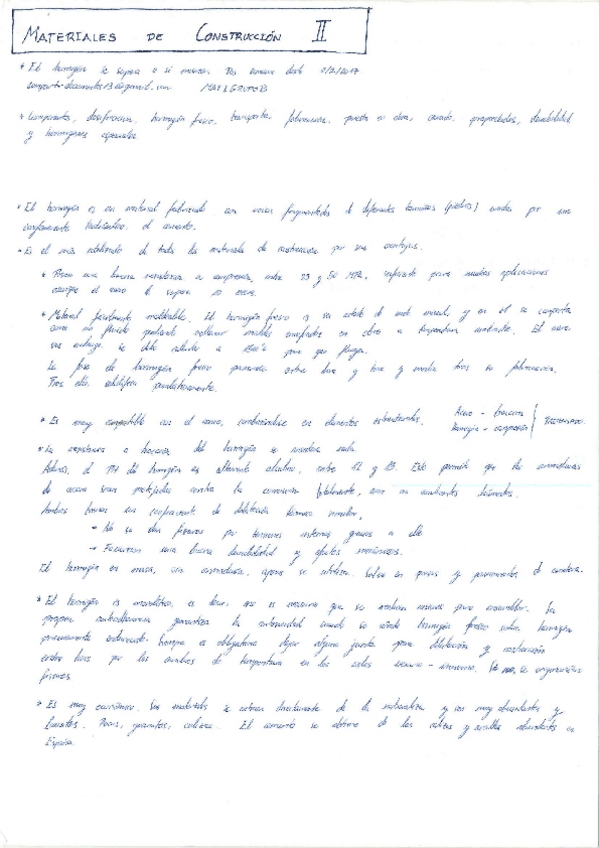 MATERIALES DE CONSTRUCCIÓN II
* El hormigón se separa a si mismo. 
* Componentes, dosificación, hormigón fresco, transporte, fabricación, puesta en obra, curado, propiedades, durabilidad
y hormigones especiales
* El hormigón es un material fabricado con rocas fragmentadas de diferentes tamaños (piedras) unidas por un
conglomerante hidráulico: el cemento.
* Es el más utilizado de todos los materiales de construcción por sus ventajas.
* Posee una buena resistencia a compresión, entre 25 y 50 MPa, suficiente para muchas aplicaciones
aunque el acero le supera
* Material fácilmente moldeable. El hormigón fresco es su estado de y en él se comporta
como un fluido pudiendo rellenar moldes en obra a temperatura ambiente. El acero
sin embargo, se debe calentar a para que fluya.
La fase de hormigón fresco permanece entre hora y hora y media tras su fabricación.
Tras ella, solidifica paulatinamente.
* Es muy compatible con el acero, combinándose en elementos estructurales. Acero - tracción
Hormigón - compresión
* La resistencia a tracción del hormigón es nula
Además, el PH del hormigón es altamente alcalino, entre 12 y 13. Esto permite que las armaduras
de acero sean protegidas contra la corrosión
Ambos tienen un coeficiente de dilatación térmica similar.
→ No se dan fisuras por tensiones internas gracias a ello
→ Favorecen una buena durabilidad y efectos mecánicos.
El hormigón en masa, sin armadura, apenas se utiliza. Salvo en presas y pavimentos de carretera.
* El hormigón es monolítico, es decir, no es necesario que se realicen uniones para ensamblar. Su
propia autoadherencia garantiza la continuidad cuando se añade hormigón fresco sobre hormigón
previamente endurecido. Aunque es obligatorio dejar alguna junta para dilatación y contracción
entre losas por los cambios de temperatura en los ciclos verano - invierno. Si no, se originarían
fisuras
* Es muy económico. Sus materiales se extraen directamente de la naturaleza y son muy abundantes y
baratos. Rocas, granitos, calizas. El cemento se obtiene de las calizas y arcillas abundantes en
España.